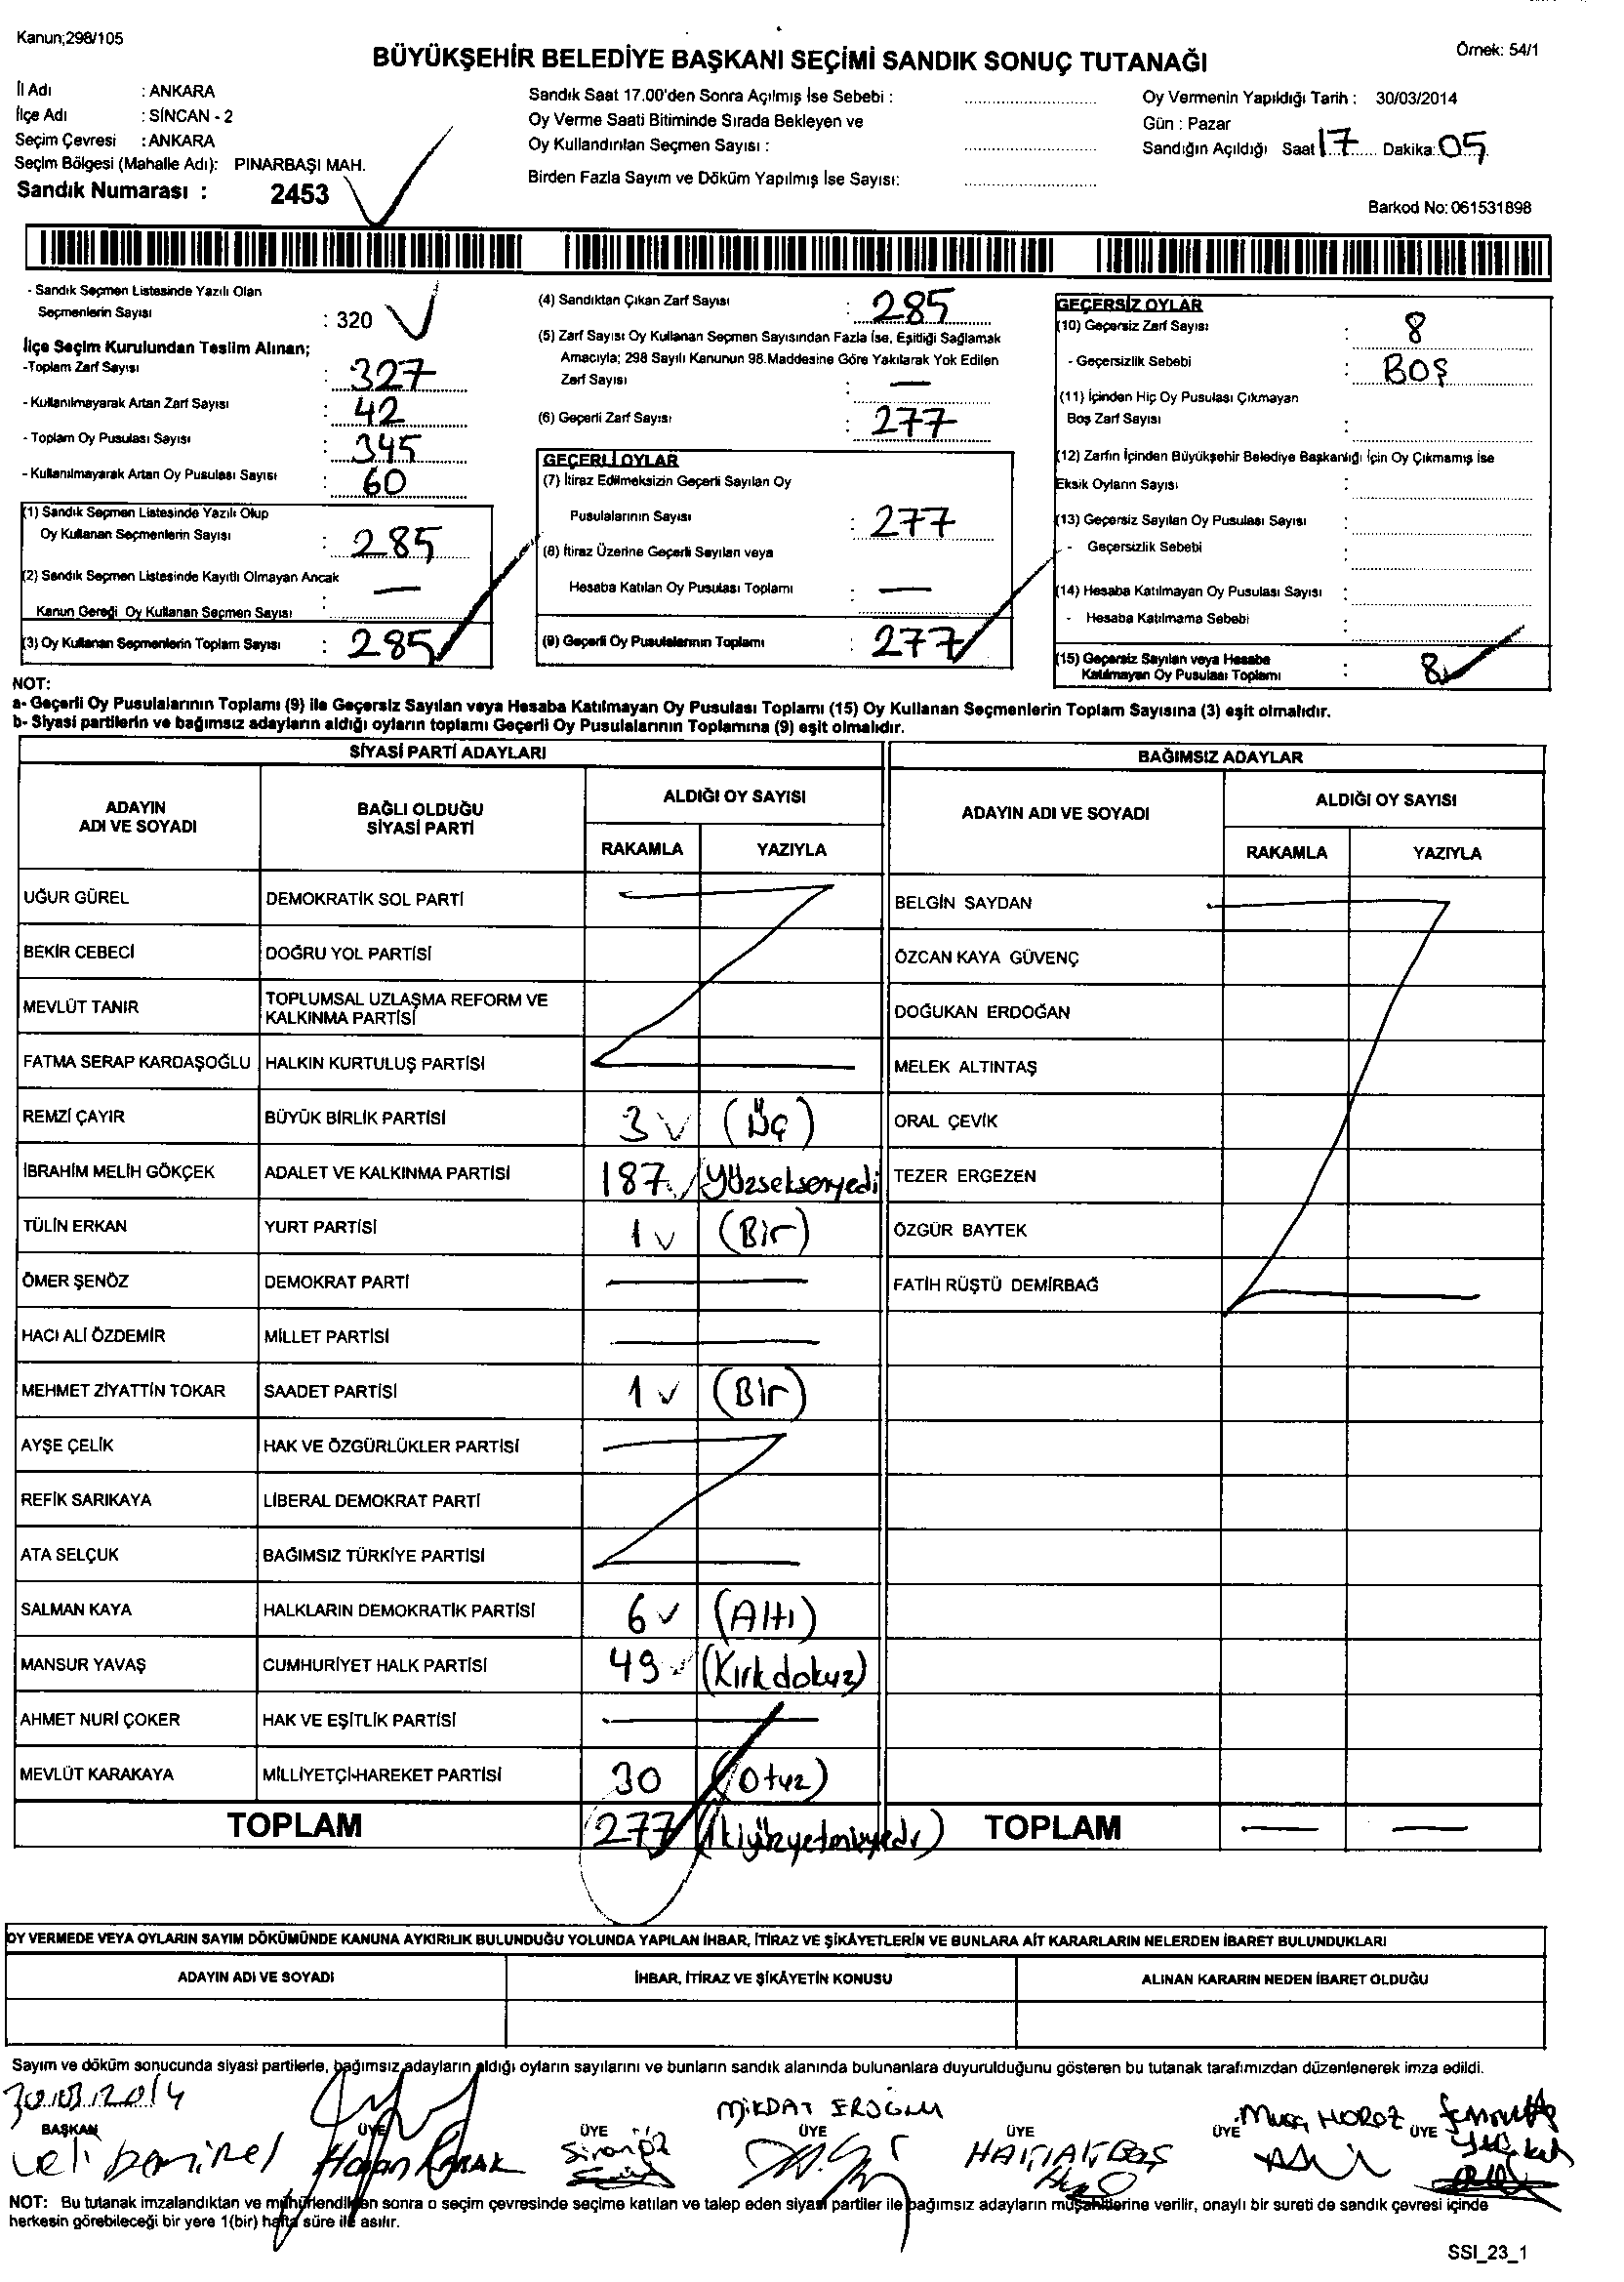 Kanun;298/105
Örnek: 54/1
BÜYÜKŞEHİR BELEDİYE BAŞKANI SEÇİMİ SANDIK SONUÇ TUTANAĞI
İl Adı : ANKARA
İlçe Adı : SİNCAN - 2
Seçim Çevresi : ANKARA
Seçim Bölgesi (Mahalle Adı): PINARBAŞI MAH.
Sandık Numarası : 2453
Sandık Saat 17.00'den Sonra Açılmış İse Sebebi :
Oy Verme Saati Bitiminde Sırada Bekleyen ve
Oy Kullandırılan Seçmen Sayısı :
Birden Fazla Sayım ve Döküm Yapılmış İse Sayısı:
Oy Vermenin Yapıldığı Tarih : 30/03/2014
Gün : Pazar
Sandığın Açıldığı Saat 17 Dakika: 05
Barkod No: 061531898
- Sandık Seçmen Listesinde Yazılı Olan
Seçmenlerin Sayısı : 320
İlçe Seçim Kurulundan Teslim Alınan;
-Toplam Zarf Sayısı : 327
- Kullanılmayarak Artan Zarf Sayısı : 42
- Toplam Oy Pusulası Sayısı : 345
- Kullanılmayarak Artan Oy Pusulası Sayısı : 60
(1) Sandık Seçmen Listesinde Yazılı Olup
Oy Kullanan Seçmenlerin Sayısı : 285
(2) Sandık Seçmen Listesinde Kayıtlı Olmayan Ancak
Kanun Gereği Oy Kullanan Seçmen Sayısı : —
(3) Oy Kullanan Seçmenlerin Toplam Sayısı : 285
(4) Sandıktan Çıkan Zarf Sayısı : 285
(5) Zarf Sayısı Oy Kullanan Seçmen Sayısından Fazla İse, Eşitliği Sağlamak
Amacıyla; 298 Sayılı Kanunun 98.Maddesine Göre Yakılarak Yok Edilen
Zarf Sayısı : —
(6) Geçerli Zarf Sayısı : 277
GEÇERLİ OYLAR
(7) İtiraz Edilmeksizin Geçerli Sayılan Oy
Pusulalarının Sayısı : 277
(8) İtiraz Üzerine Geçerli Sayılan veya
Hesaba Katılan Oy Pusulası Toplamı : —
(9) Geçerli Oy Pusulalarının Toplamı : 277
GEÇERSİZ OYLAR
(10) Geçersiz Zarf Sayısı : 8
- Geçersizlik Sebebi : BOŞ
(11) İçinden Hiç Oy Pusulası Çıkmayan
Boş Zarf Sayısı :
(12) Zarfın İçinden Büyükşehir Belediye Başkanlığı İçin Oy Çıkmamış İse
Eksik Oyların Sayısı :
(13) Geçersiz Sayılan Oy Pusulası Sayısı :
- Geçersizlik Sebebi :
(14) Hesaba Katılmayan Oy Pusulası Sayısı :
- Hesaba Katılmama Sebebi :
(15) Geçersiz Sayılan veya Hesaba
Katılmayan Oy Pusulası Toplamı : 8
NOT:
a- Geçerli Oy Pusulalarının Toplamı (9) ile Geçersiz Sayılan veya Hesaba Katılmayan Oy Pusulası Toplamı (15) Oy Kullanan Seçmenlerin Toplam Sayısına (3) eşit olmalıdır.
b- Siyasi partilerin ve bağımsız adayların aldığı oyların toplamı Geçerli Oy Pusulalarının Toplamına (9) eşit olmalıdır.
SİYASİ PARTİ ADAYLARI
ADAYIN ADI VE SOYADI
BAĞLI OLDUĞU SİYASİ PARTİ
ALDIĞI OY SAYISI
RAKAMLA YAZIYLA
UĞUR GÜREL DEMOKRATİK SOL PARTİ
BEKİR CEBECİ DOĞRU YOL PARTİSİ
MEVLÜT TANIR TOPLUMSAL UZLAŞMA REFORM VE
KALKINMA PARTİSİ
FATMA SERAP KARDAŞOĞLU HALKIN KURTULUŞ PARTİSİ
REMZİ ÇAYIR BÜYÜK BİRLİK PARTİSİ 3 (Üç)
İBRAHİM MELİH GÖKÇEK ADALET VE KALKINMA PARTİSİ 187 Yüzseksenyedi
TÜLİN ERKAN YURT PARTİSİ 1 (Bir)
ÖMER ŞENÖZ DEMOKRAT PARTİ —
HACI ALİ ÖZDEMİR MİLLET PARTİSİ —
MEHMET ZİYATTİN TOKAR SAADET PARTİSİ 1 (Bir)
AYŞE ÇELİK HAK VE ÖZGÜRLÜKLER PARTİSİ
REFİK SARIKAYA LİBERAL DEMOKRAT PARTİ
ATA SELÇUK BAĞIMSIZ TÜRKİYE PARTİSİ
SALMAN KAYA HALKLARIN DEMOKRATİK PARTİSİ 6 (Altı)
MANSUR YAVAŞ CUMHURİYET HALK PARTİSİ 49 (Kırkdokuz)
AHMET NURİ ÇOKER HAK VE EŞİTLİK PARTİSİ —
MEVLÜT KARAKAYA MİLLİYETÇİ HAREKET PARTİSİ 30 (Otuz)
TOPLAM 277 (ikiyüzyetmişyedi)
BAĞIMSIZ ADAYLAR
ADAYIN ADI VE SOYADI
ALDIĞI OY SAYISI
RAKAMLA YAZIYLA
BELGİN SAYDAN
ÖZCAN KAYA GÜVENÇ
DOĞUKAN ERDOĞAN
MELEK ALTINTAŞ
ORAL ÇEVİK
TEZER ERGEZEN
ÖZGÜR BAYTEK
FATİH RÜŞTÜ DEMİRBAĞ
TOPLAM — —
OY VERMEDE VEYA OYLARIN SAYIM DÖKÜMÜNDE KANUNA AYKIRILIK BULUNDUĞU YOLUNDA YAPILAN İHBAR, İTİRAZ VE ŞİKÂYETLERİN VE BUNLARA AİT KARARLARIN NELERDEN İBARET BULUNDUKLARI
ADAYIN ADI VE SOYADI İHBAR, İTİRAZ VE ŞİKÂYETİN KONUSU ALINAN KARARIN NEDEN İBARET OLDUĞU
Sayım ve döküm sonucunda siyasi partilerle, bağımsız adayların aldığı oyların sayılarını ve bunların sandık alanında bulunanlara duyurulduğunu gösteren bu tutanak tarafımızdan düzenlenerek imza edildi.
30.03.2014
MİKDAT EROĞLU
BAŞKAN ÜYE ÜYE ÜYE ÜYE ÜYE Musa HOROZ ÜYE
Veli Demirel Hasan
NOT: Bu tutanak imzalandıktan ve mühürlendikten sonra o seçim çevresinde seçime katılan ve talep eden siyasi partiler ile bağımsız adayların müşahitlerine verilir, onaylı bir sureti de sandık çevresi içinde
herkesin görebileceği bir yere 1(bir) hafta süre ile asılır.
SSI_23_1